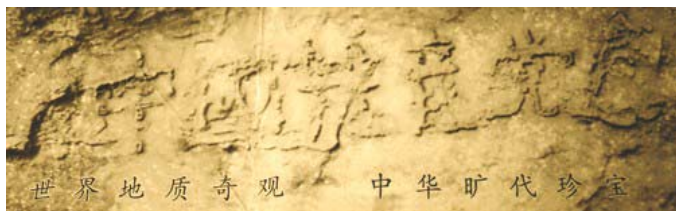 中國共产党亡
世界地质奇观 中华旷代珍宝